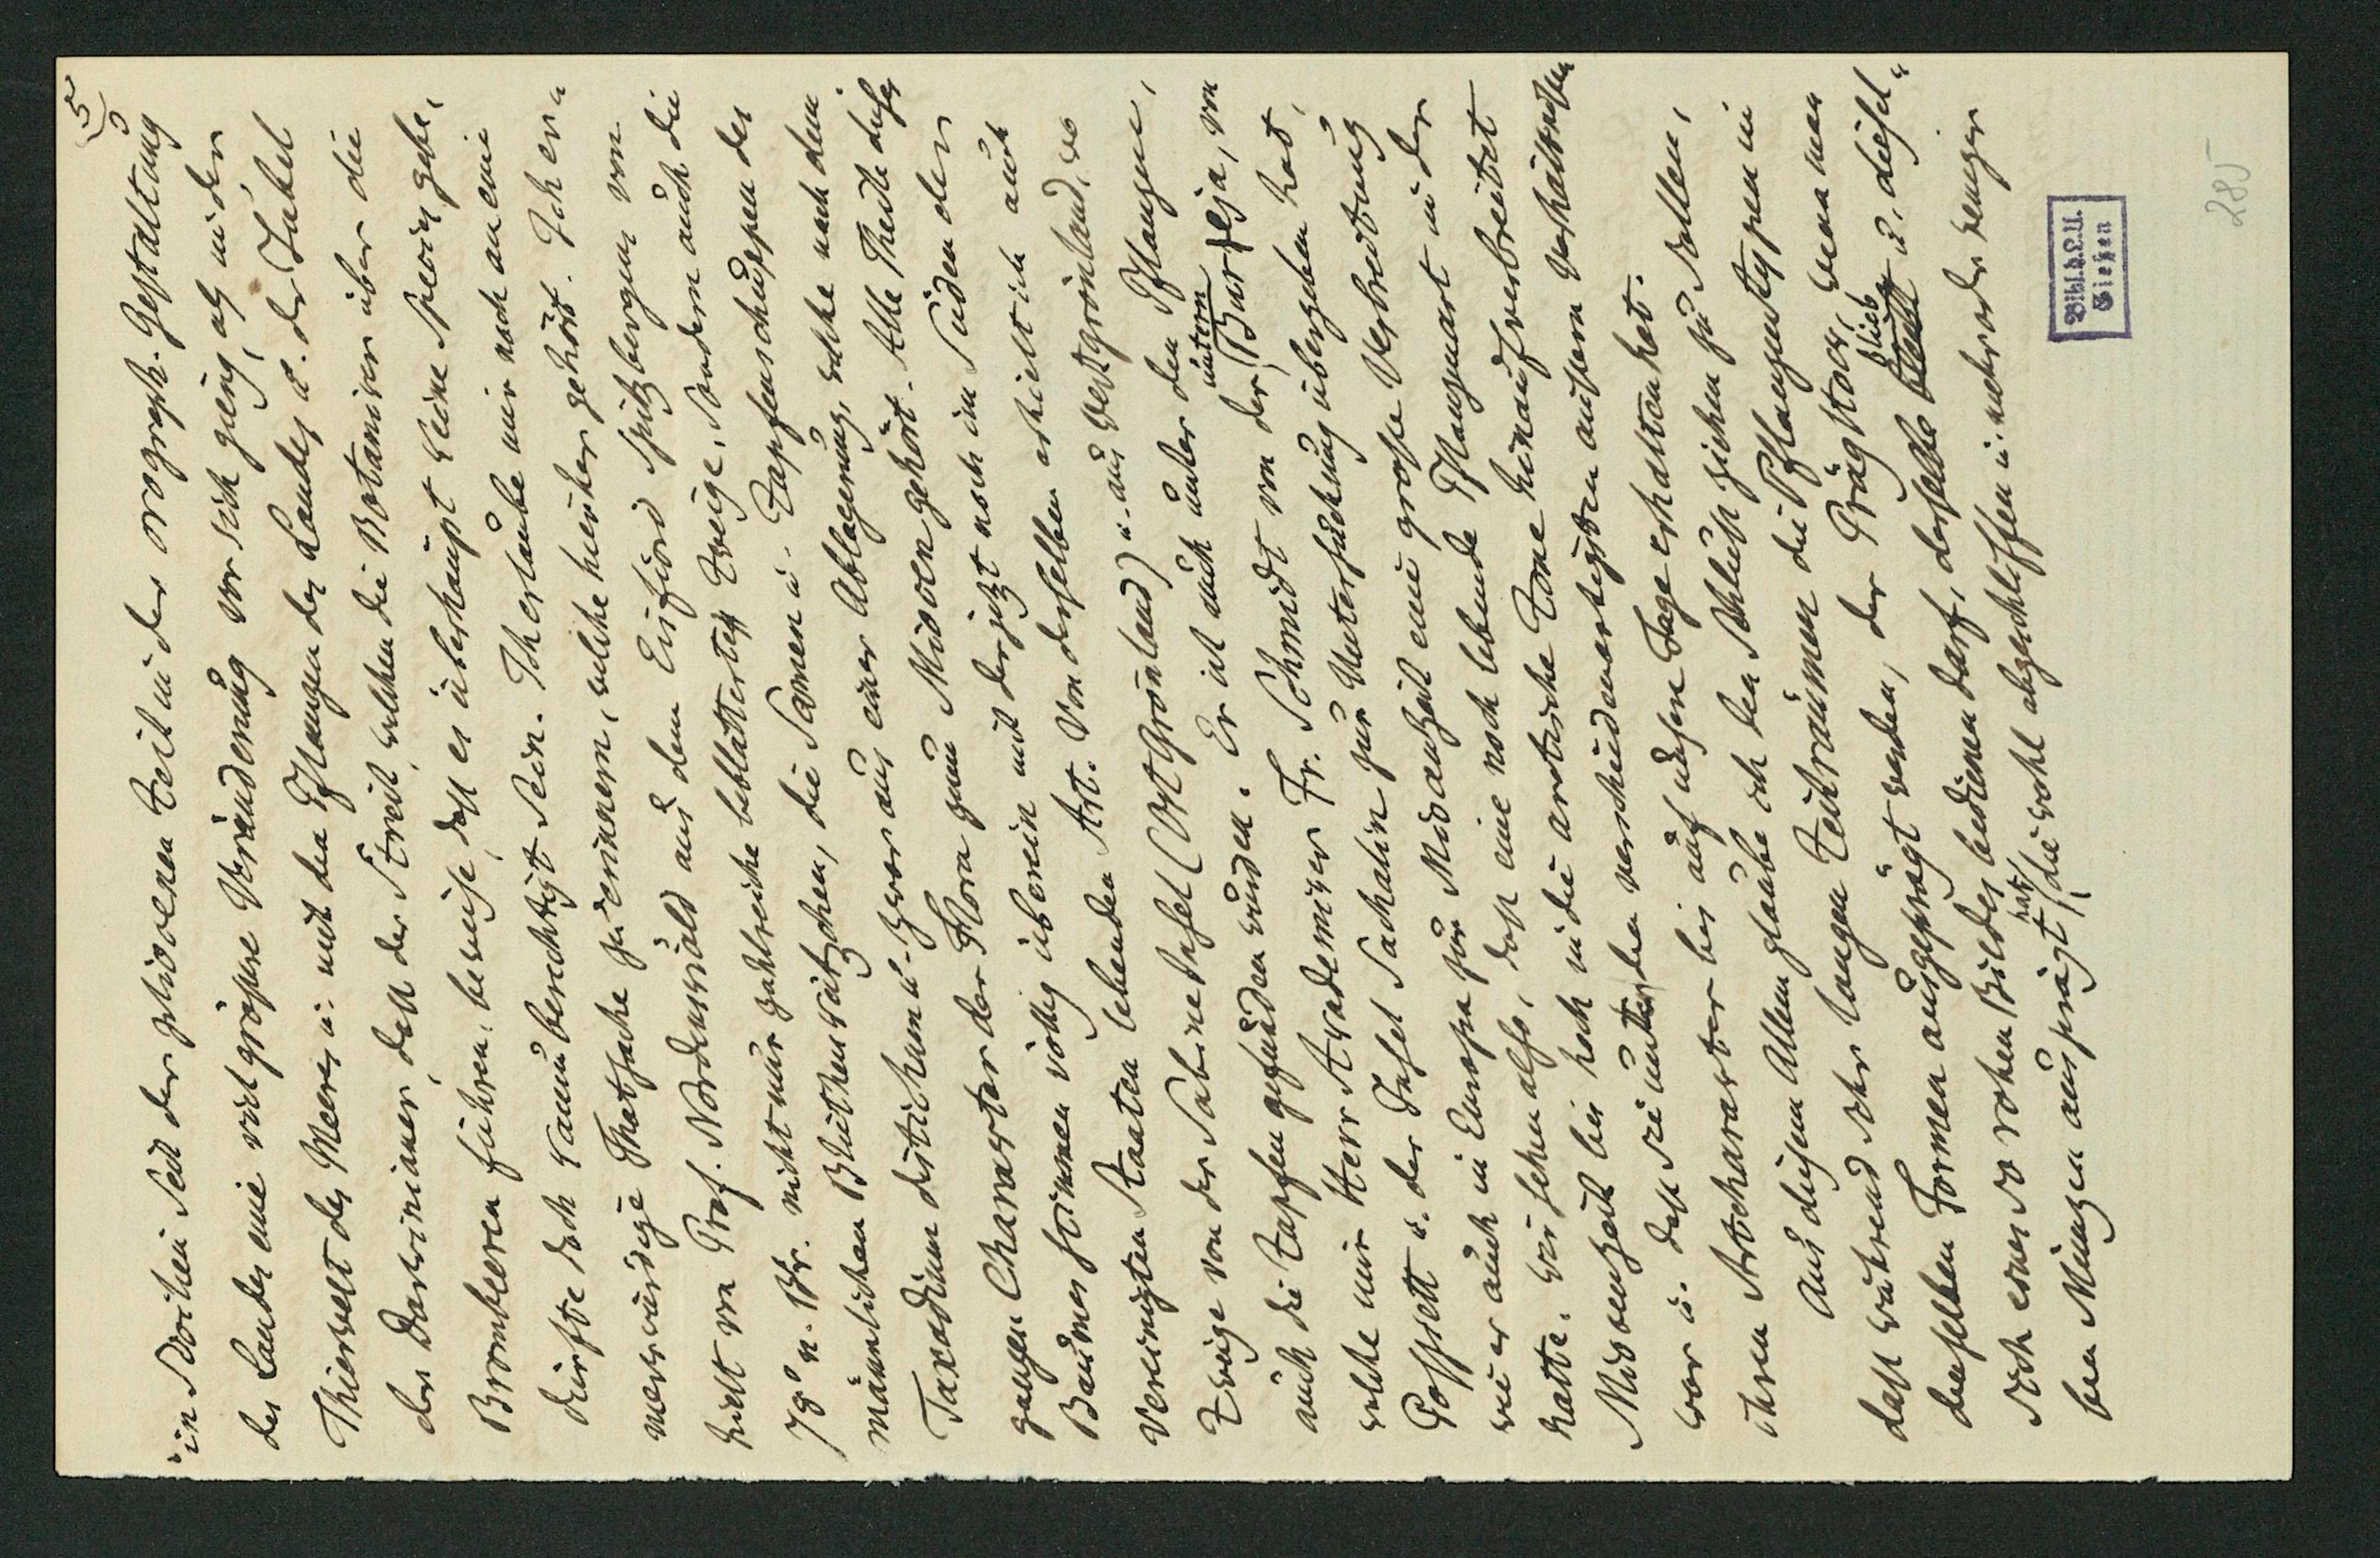 5)
in Sicilien seit der pliocenen Zeit in der orograph. Gestaltung
des Landes eine viel grössere Veränderung vor sich gieng, als in der
Thierwelt des Meeres u. mit den Pflanzen des Landes u. der Jubel
der Darwinianer, dass der Streit, welchen die Botaniker über die
Brombeeren führen, beweise, dass es überhaupt keine Species gebe,
dürfte doch kaum berechtigt sein. Ich erlaube mir noch an eine
merkwürdige Thatsache zu erinnern, welche hierher gehört. Ich er-
hielt von Prof. Nordenskiöld aus dem Eisfiord Spitzbergens von
78° n. Br. nicht nur zahlreiche beblätterte Zweige, sondern auch die
männlichen Blüthenkätzchen, die Samen u. Zapfenschuppen des
Taxodium distichum u. zwar aus einer Ablagerung, welche nach dem
ganzen Character der Flora zum Miocen gehört. Alle Theile dieses
Baumes stimmen völlig überein mit der jetzt noch im Süden der
Vereinigten Staaten lebenden Art. Von derselben erhielt ich auch
Zweige von der Sabine Insel (Ost Grönland) u. aus Westgrönland, wo
auch die Zapfen gefunden wurden. Er ist auch unter den Pflanzen,
welche mir Herr Akademiker Fr. Schmidt von der untern Bureja, von
Possiett u. der Insel Sachalin zur Untersuchung übergeben hat,
wie er auch in Europa zur Miocenzeit eine grosse Verbreitung
hatte. Wir sehen also, dass eine noch lebende Pflanzenart in der
Miocenzeit bis hoch in die arctische Zone hinauf verbreitet
war u. dass sie unter den verschiedenartigsten äussern Verhältnissen
ihren Artcharacter bis auf unsere Tage erhalten hat.
Aus diesem Allem glaube ich den Schluss ziehen zu sollen,
dass während sehr langen Zeiträumen die Pflanzentypen in
denselben Formen ausgeprägt werden, der Prägstock, wenn man
sich eines so rohen Bildes bedienen darf, derselbe blieb u. diesel-
ben Münzen ausprägt hat, die wohl abgeschliffen u. mehr oder weniger
Bibl.d.L.U.
Gießen
285